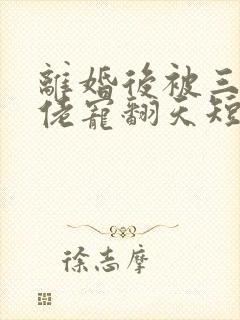 離婚後被三
佬寵翻天短
徐志摩